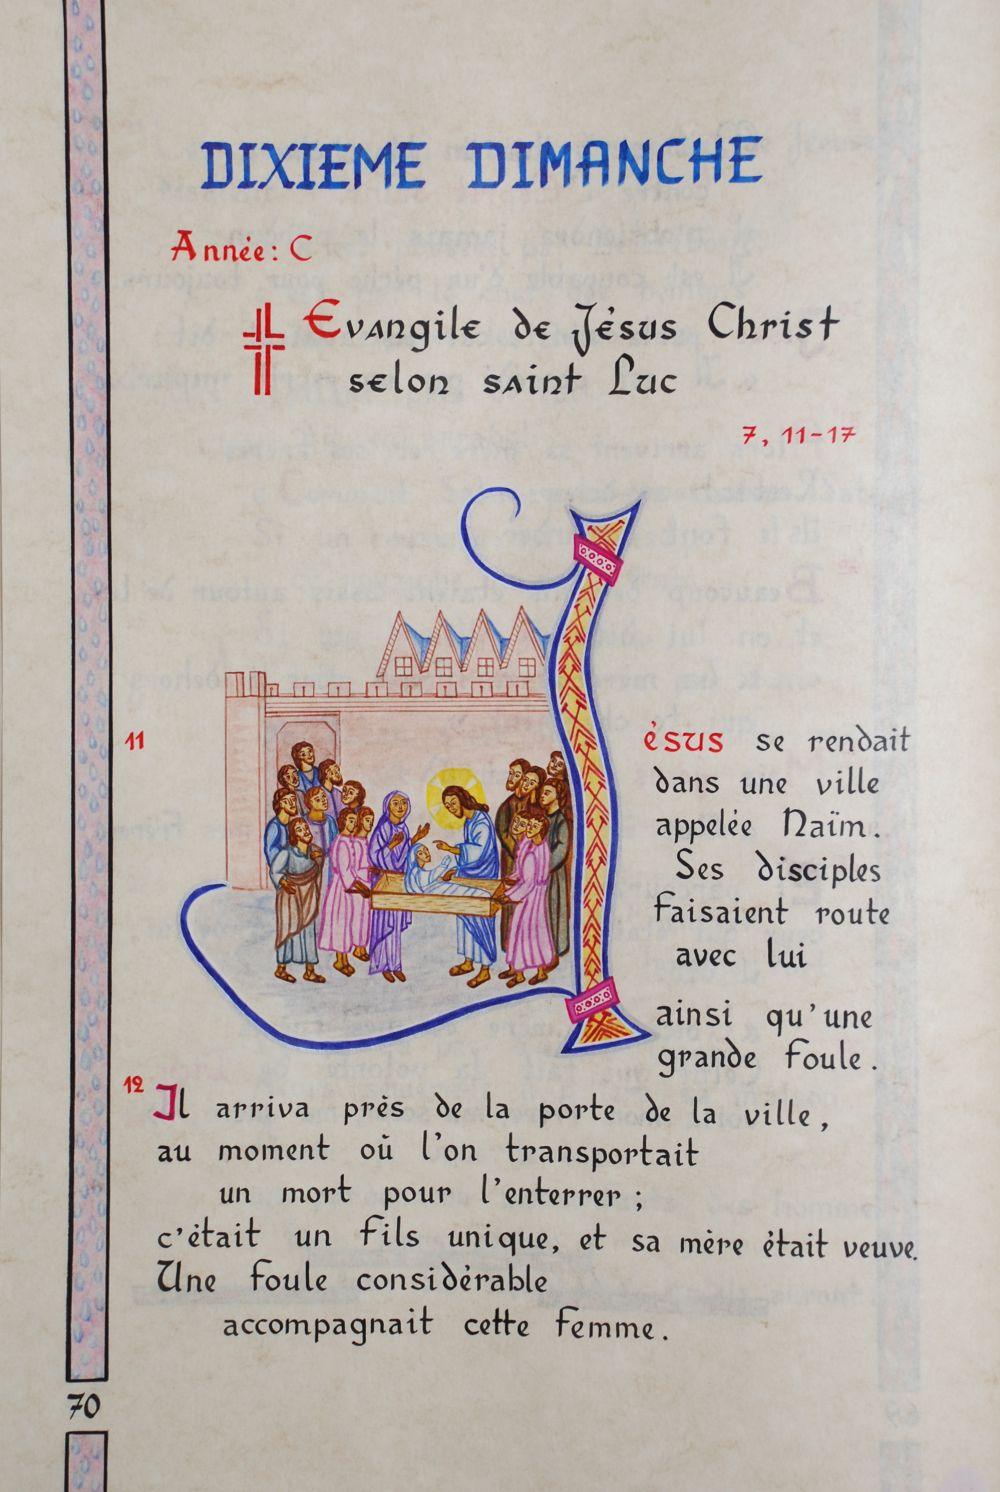 DIXIEME DIMANCHE
Année : C
Evangile de Jésus Christ
selon saint Luc
7, 11-17
11
Jésus se rendait
dans une ville
appelée Naïm.
Ses disciples
faisaient route
avec lui
ainsi qu'une
grande foule.
12
Il arriva près de la porte de la ville,
au moment où l'on transportait
un mort pour l'enterrer ;
c'était un fils unique, et sa mère était veuve.
Une foule considérable
accompagnait cette femme.
70